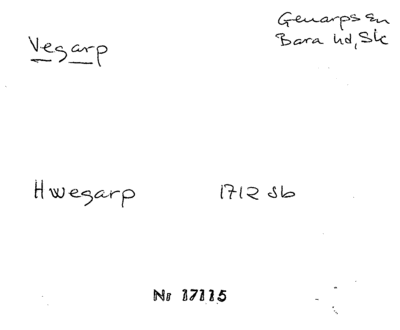 Vegarp
Genarps sn
Bara hd, Sk
Hwegarp 1712 Jb
Nr 17115